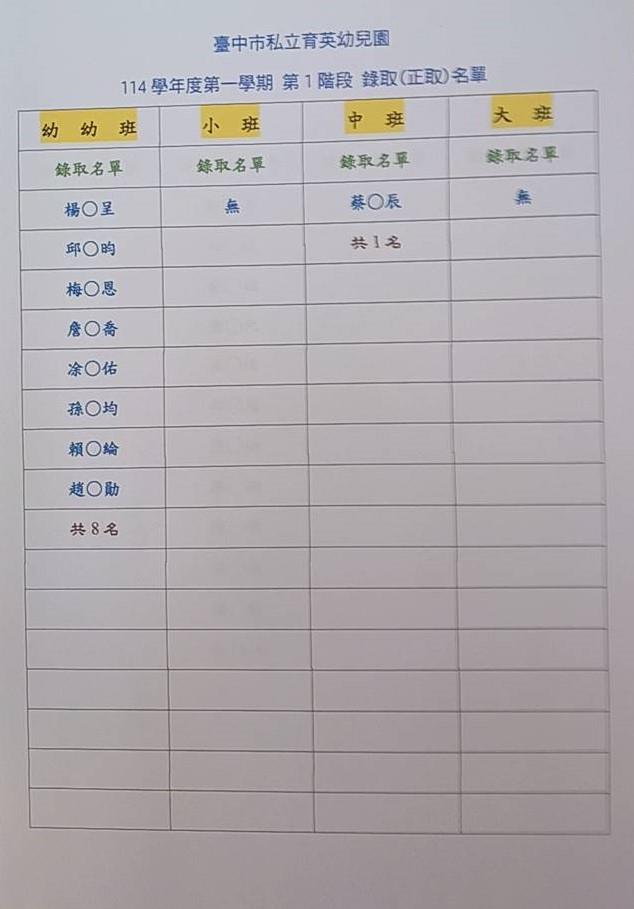 臺中市私立育英幼兒園
114 學年度第一學期 第 1 階段 錄取(正取)名單
幼 幼 班 小 班 中 班 大 班
錄取名單 錄取名單 錄取名單 錄取名單
楊○呈 無 蔡○辰 無
邱○昀 共 1 名
梅○恩
詹○喬
凃○佑
孫○均
賴○綸
趙○勛
共 8 名